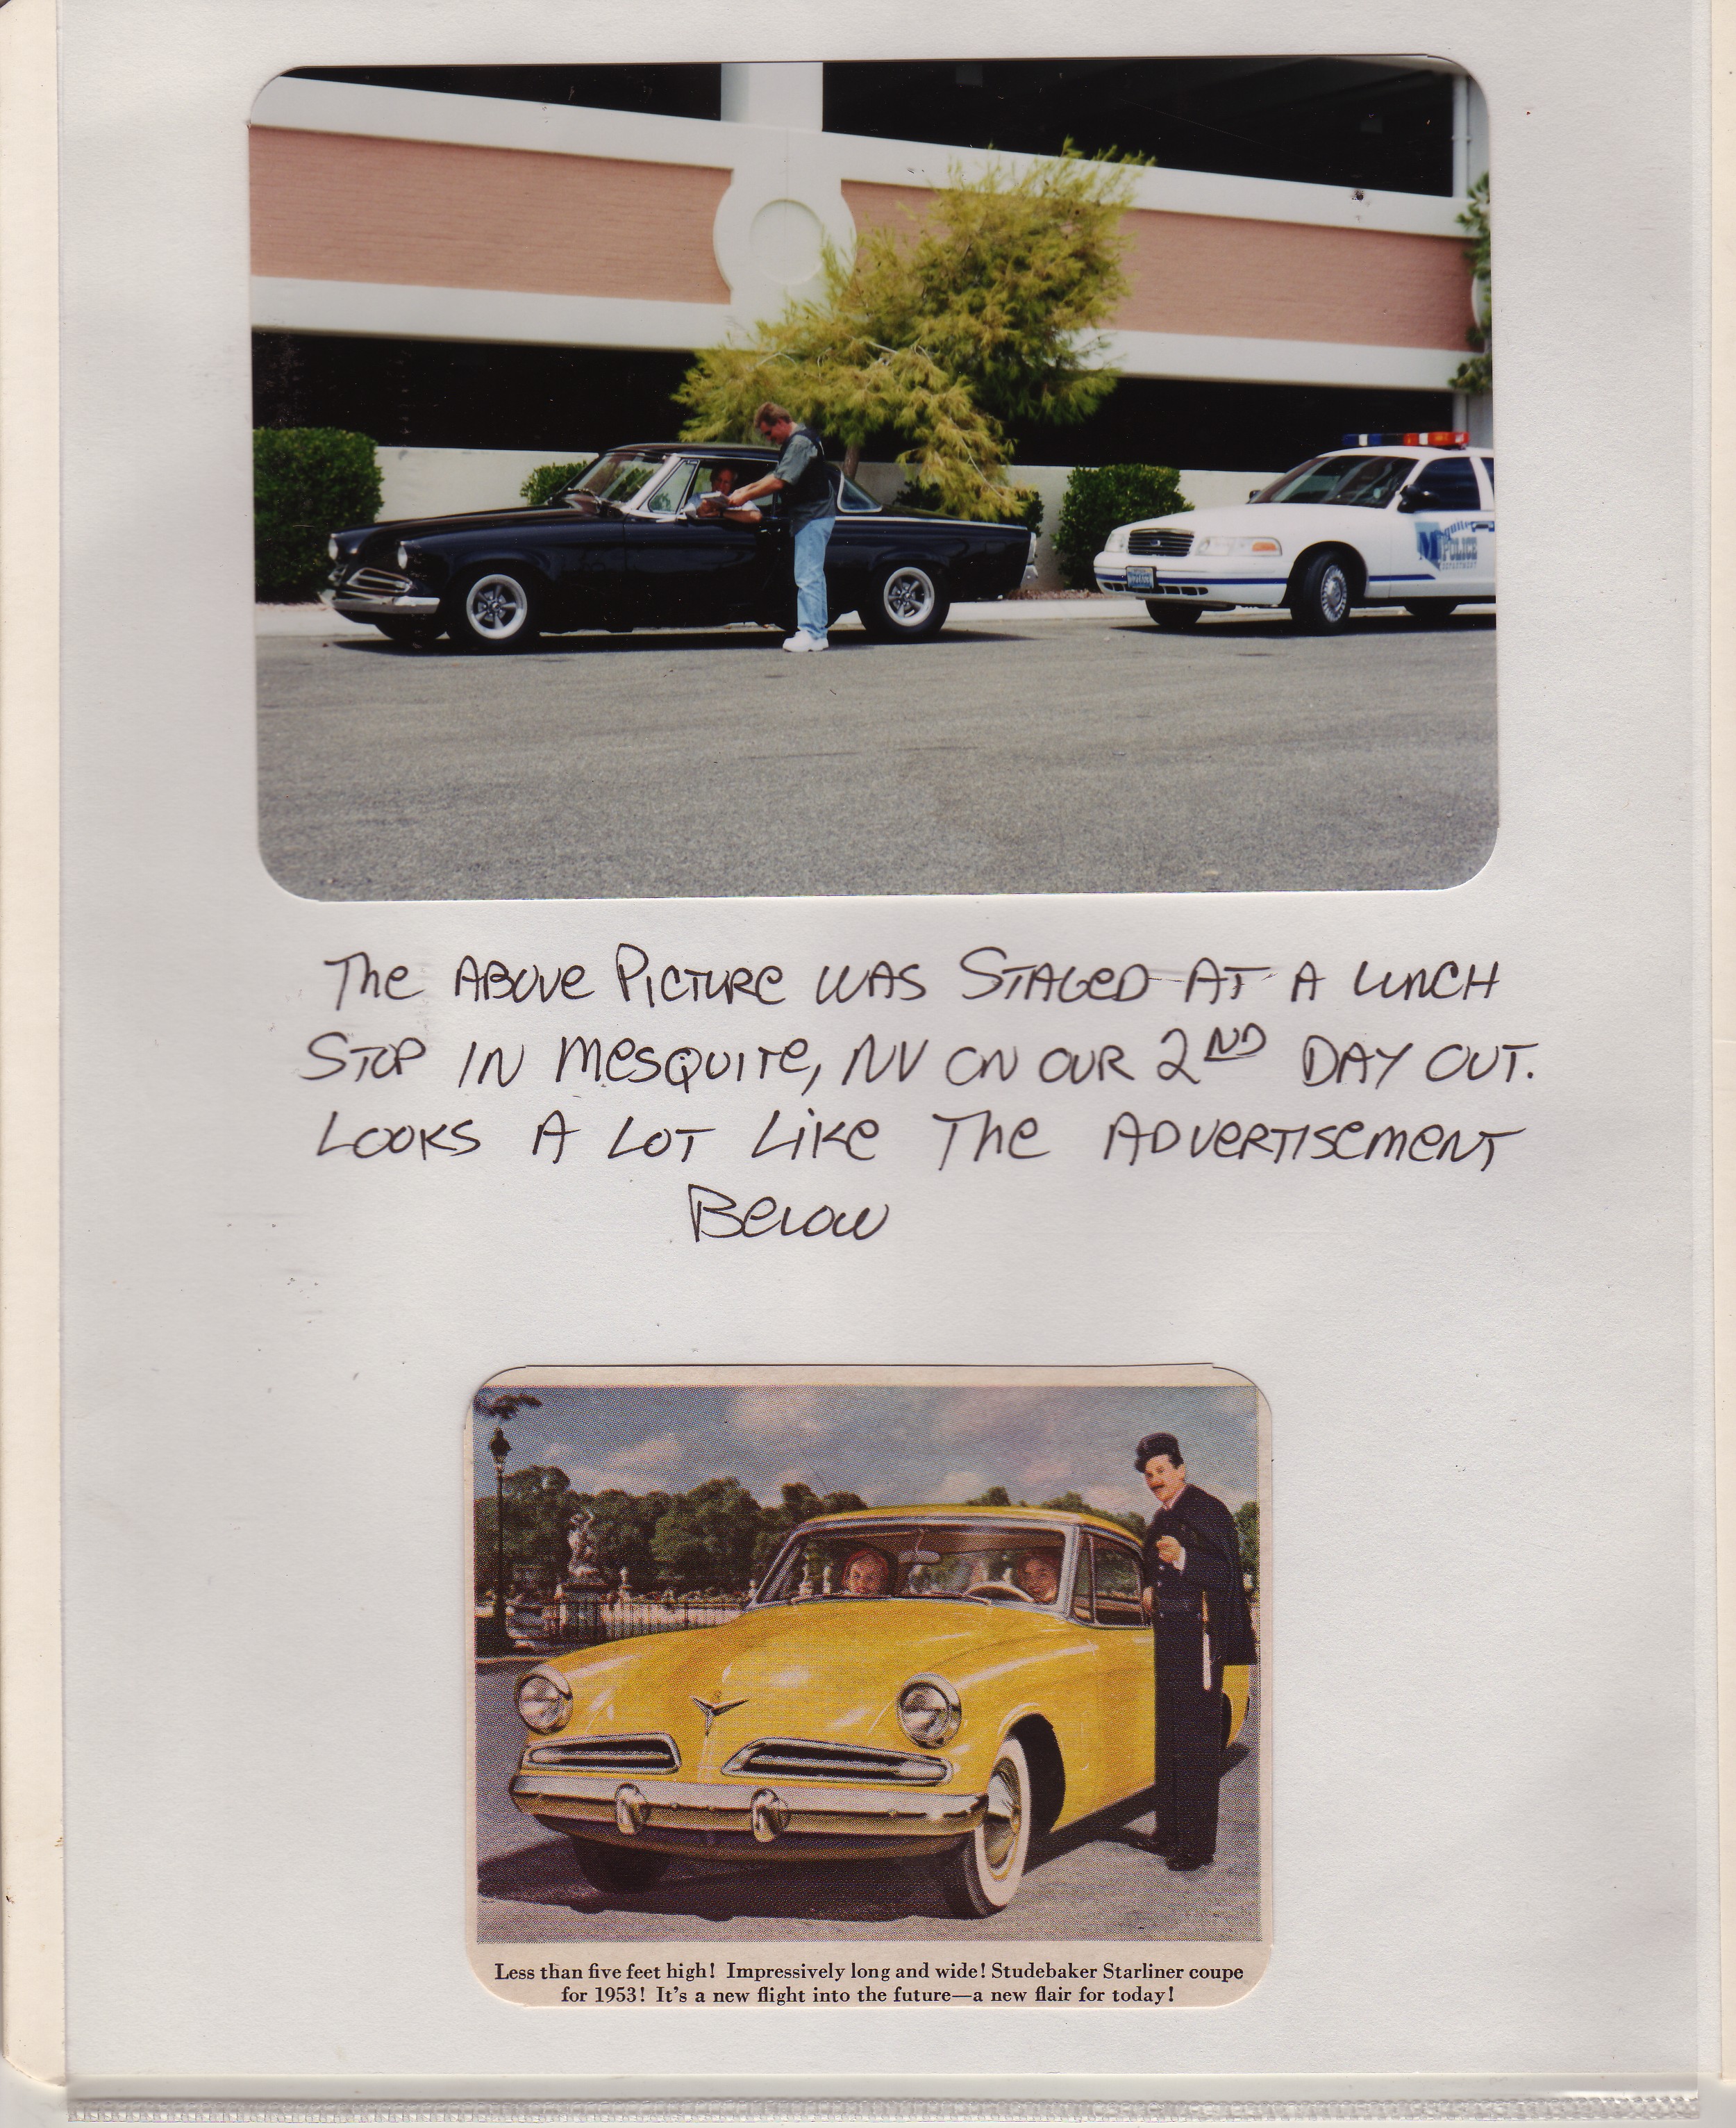 Mesquite
POLICE
DEPARTMENT
The ABOVE PICTURE WAS STAGED AT A LUNCH
STOP IN MESQUITE, NV ON OUR 2ND DAY OUT.
LOOKS A LOT LIKE The ADVERTISEMENT
BELOW
Less than five feet high! Impressively long and wide! Studebaker Starliner coupe
for 1953! It's a new flight into the future—a new flair for today!